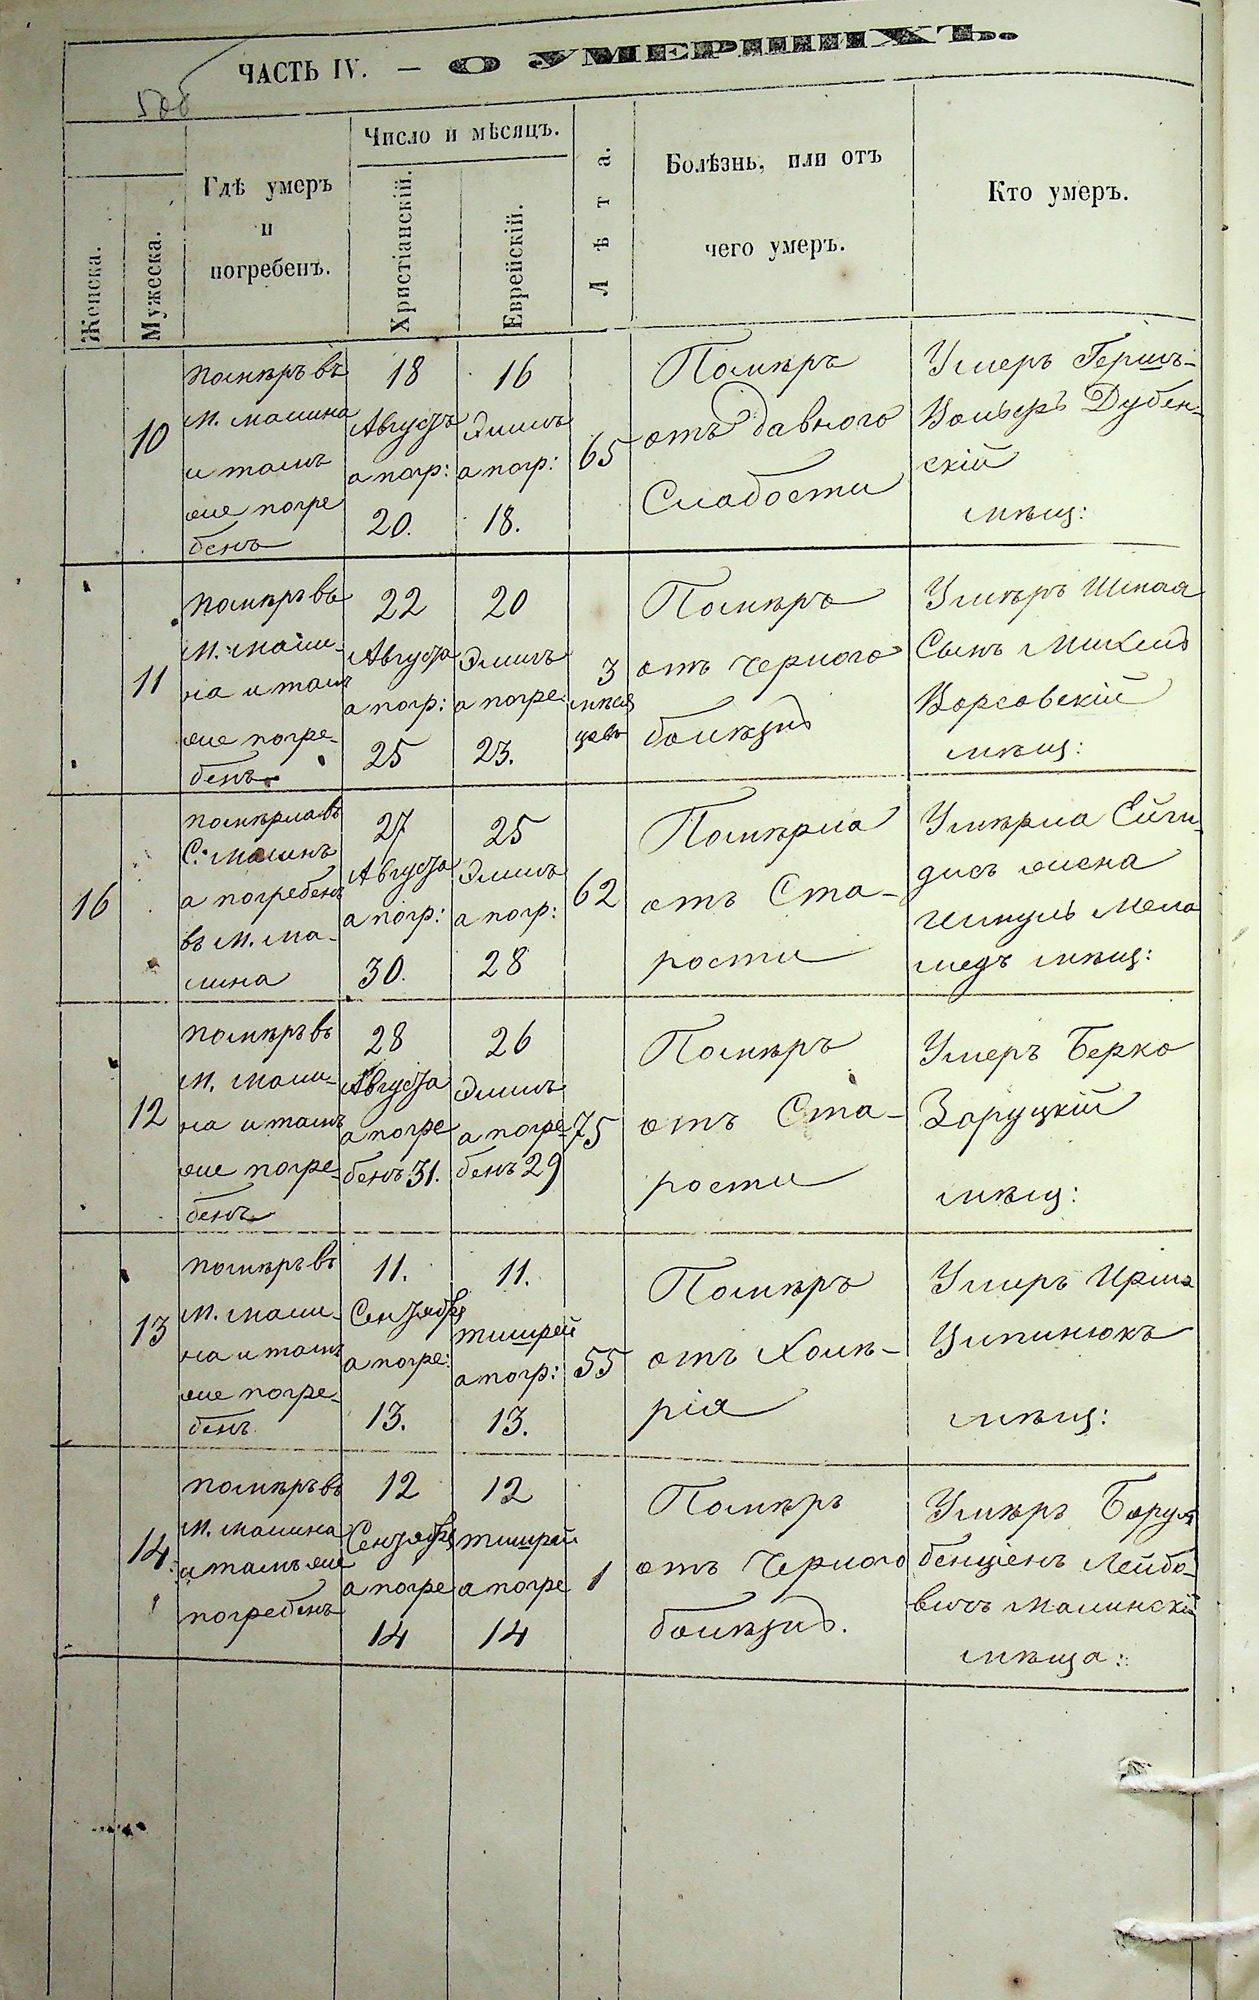 ЧАСТЬ IV. — О УМЕРШИХЪ.
Женска.
Мужеска.
Гдѣ умеръ
и
погребенъ.
Число и мѣсяцъ.
Христіанскій.
Еврейскій.
Лѣта.
Болѣзнь, или отъ
чего умеръ.
Кто умеръ.
10
Помѣръ въ
м. Малина
и тамъ
же погре
бенъ
18
Августъ
а погр:
20.
16
Элилъ
а погр:
18.
65
Помѣръ
отъ давного
Слабости
Умеръ Гершъ-
Вольфъ Дубен-
скій
мѣщ:
11
Помѣръ въ
М. Мали-
на и тамъ
же погре-
бенъ
22
Августа
а погр:
25
20
Элилъ
а погре
23.
3
мѣся
цевъ
Помѣръ
отъ черного
болѣзнъ
Умѣръ Шмая
Сынъ
Ворсовскій
мѣщ:
16
Помѣрла въ
С.
а погребенъ
въ М. Ма-
лина
27
Августа
а погр:
30.
25
Элилъ
а погр:
28
62
Помѣрла
отъ Ста-
рости
Умѣрла
жена
Мела
медъ мѣщ:
12
Помѣръ въ
М. Мали-
на и тамъ
же погре-
бенъ
28
Августа
а погре
бенъ 31.
26
Элилъ
а погре-
бенъ 29
75
Помѣръ
отъ Ста-
рости
Умеръ Берко
Заруцкій
мѣщ:
13
Помѣръ въ
М. Мали-
на и тамъ
же погре-
бенъ
11.
Сентября
а погре:
13.
11.
тишрей
а погр:
13.
55
Помѣръ
отъ Холѣ-
рія
Умеръ
мѣщ:
14.
Помѣръ въ
М. Малина
и тамъ же
погребенъ
12
Сентября
а погре
14
12
тишрей
а погре
14
1
Помѣръ
отъ Черного
болѣзнъ.
Умѣръ Борух
бенціенъ Лейбо-
вичъ Малинскій
мѣща: